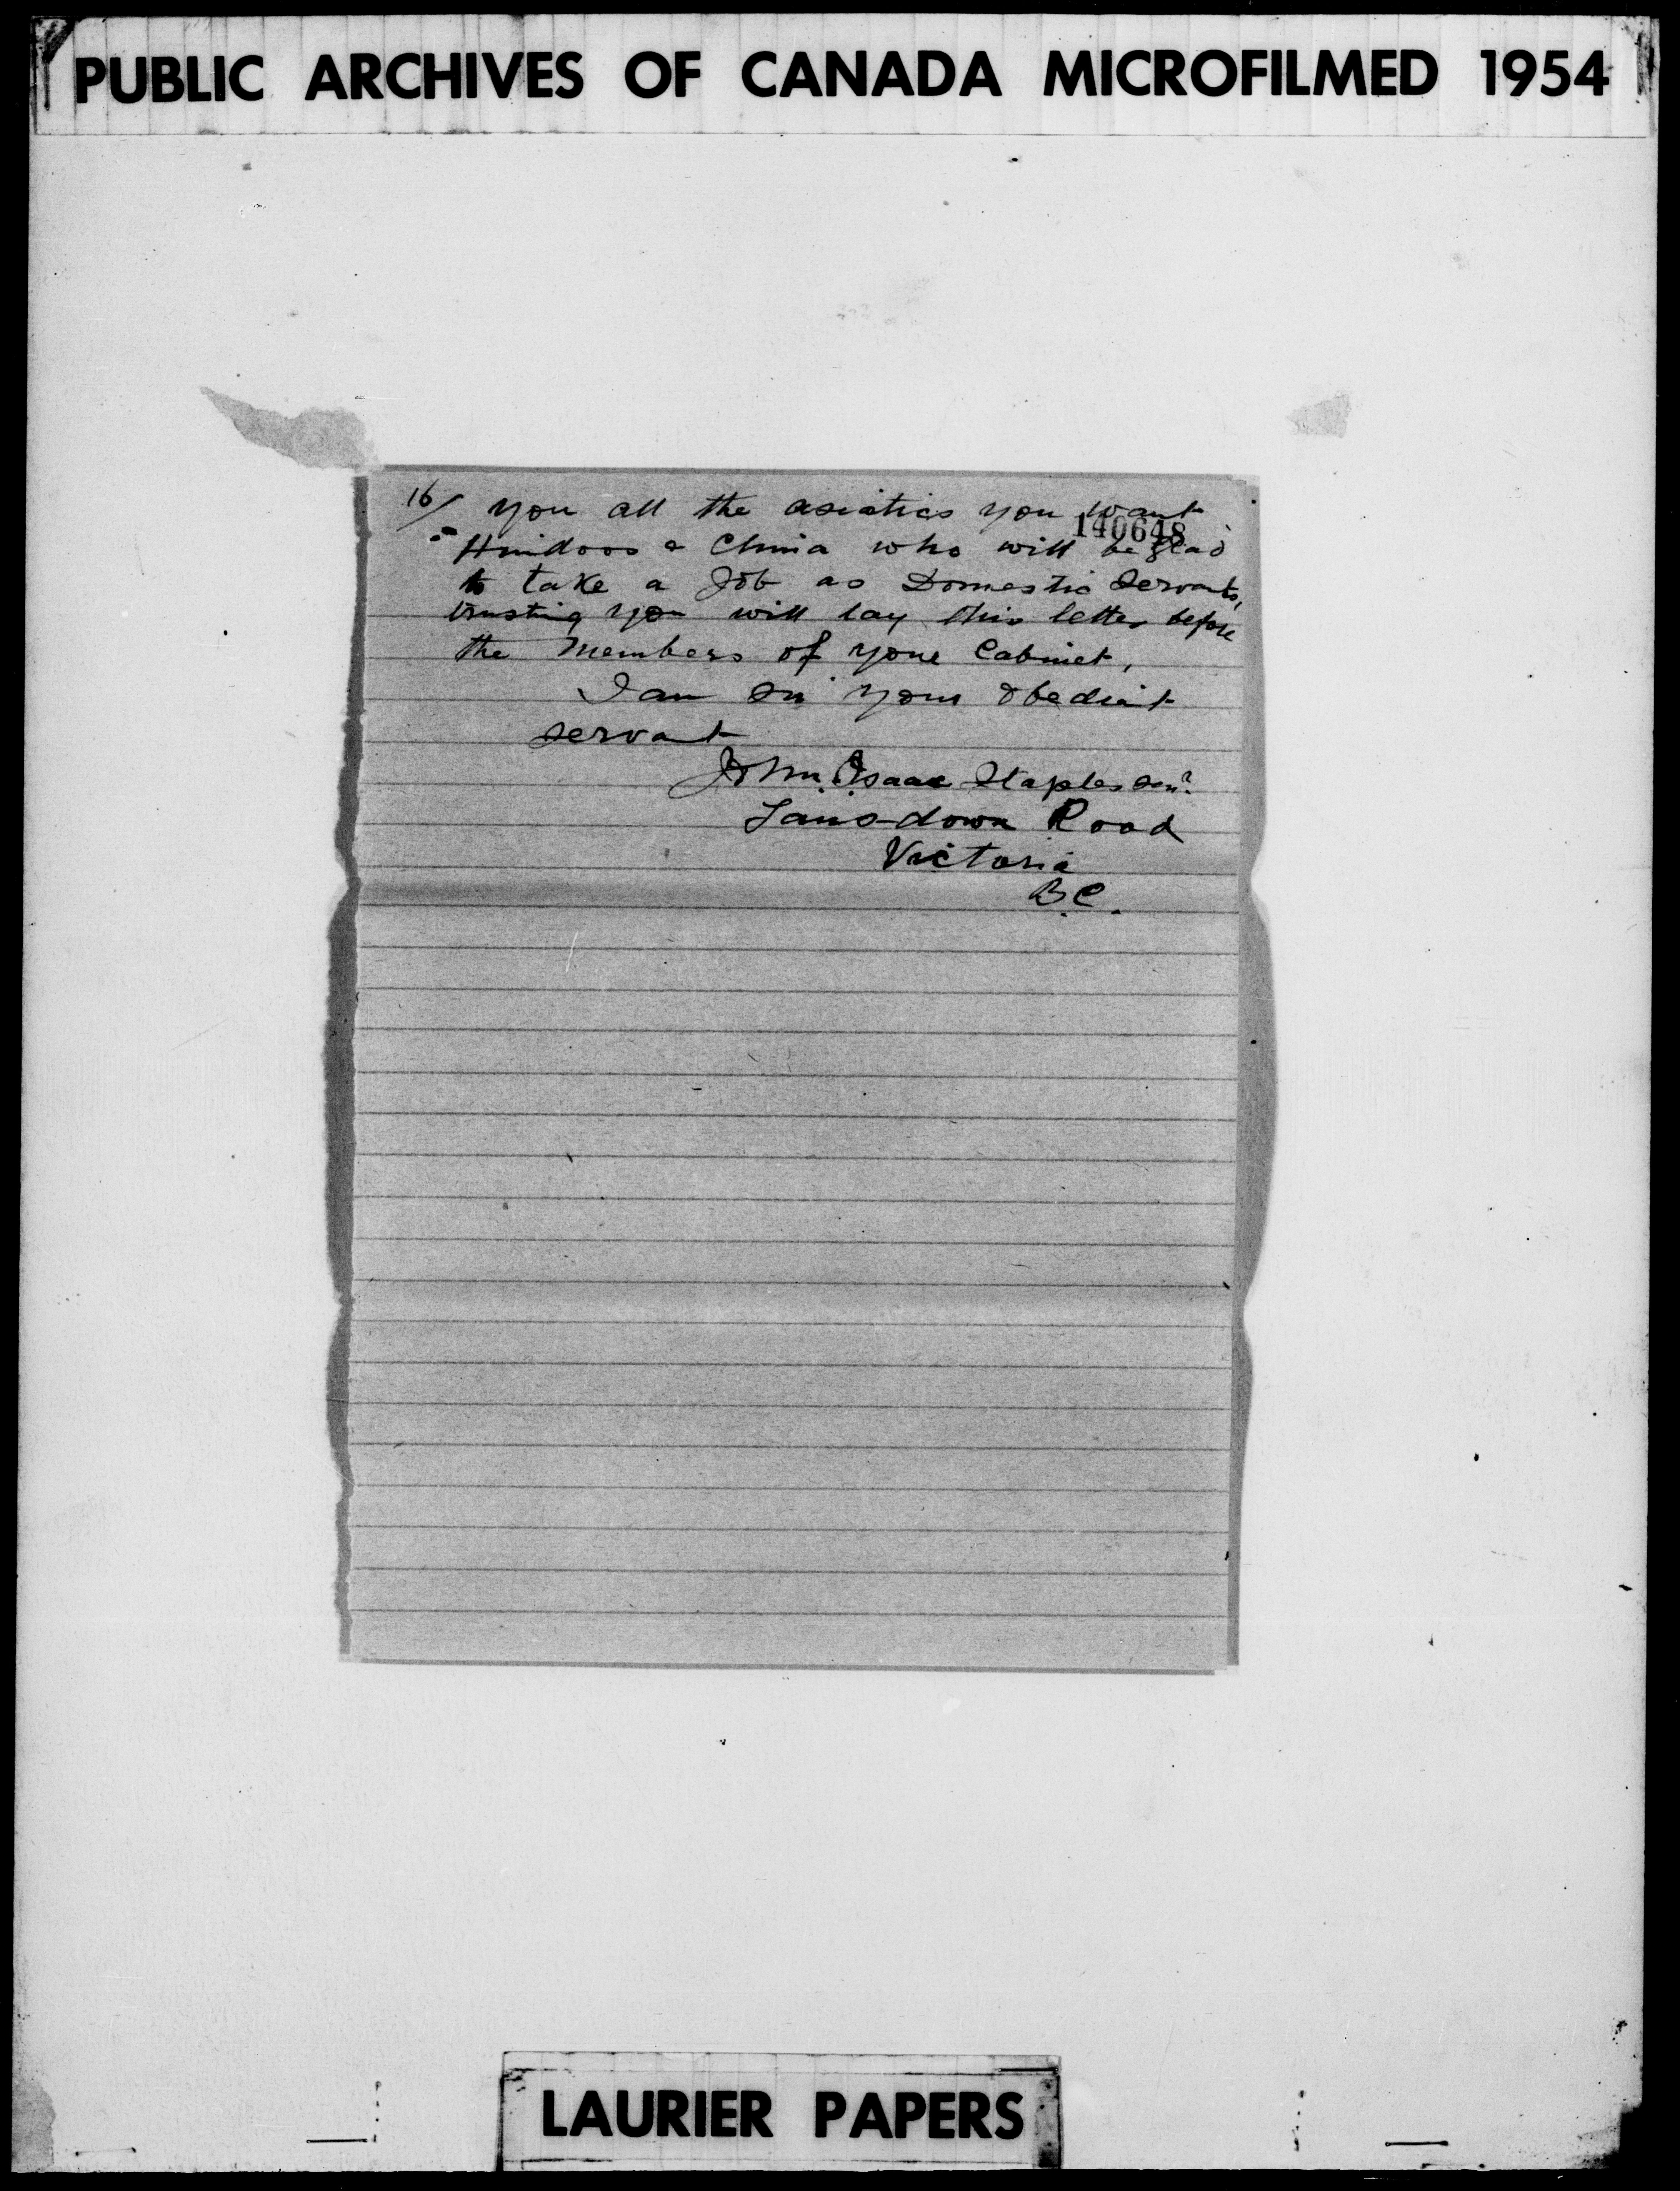 PUBLIC ARCHIVES OF CANADA MICROFILMED 1954
16/ you all the asiatics you want
140648
Hindoos & China who will be glad
to take a Job as Domestic Servants,
trusting you will lay this letter before
the Members of your Cabinet,
I am Sir your obedient
servant
John Isaac Staples Senr
Lansdown Road
Victoria
B.C.
LAURIER PAPERS